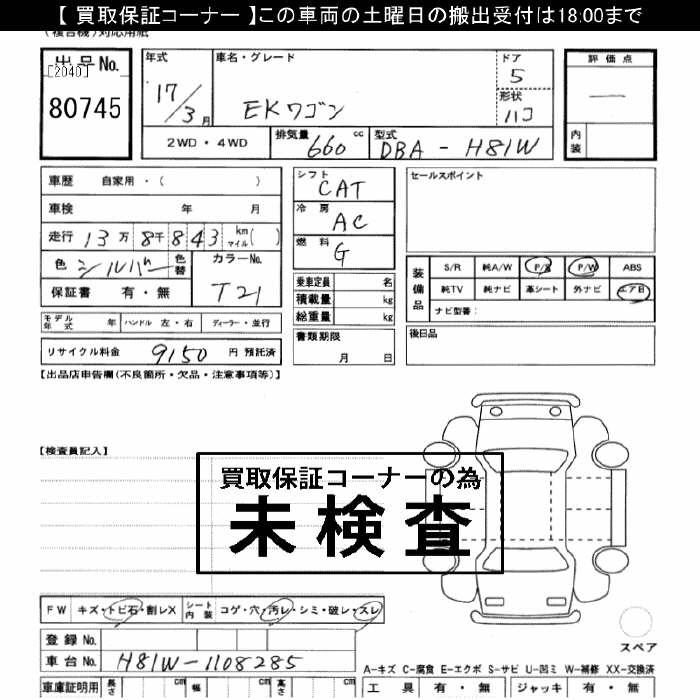 【 買取保証コーナー 】この車両の土曜日の搬出受付は18:00まで
(複合機)対応用紙
出品No.
[2040]
80745
年式
17/3月
車名・グレード
EKワゴン
ドア
5
形状
ハコ
評価点
—
内装
2WD・4WD
排気量
660 cc
型式
DBA-H81W
車歴 自家用・( )
車検 年 月
走行 13万8千843 km マイル( )
色 シルバー 色替
カラーNo.
T21
保証書 有・無
モデル年式 年 ハンドル 左・右 ディーラー・並行
リサイクル料金 9150 円 預託済
シフト
CAT
冷房
AC
燃料
G
乗車定員 名
積載量 kg
総重量 kg
書類期限
月 日
セールスポイント
装備品
S/R 純A/W P/S P/W ABS
純TV 純ナビ 革シート 外ナビ エアB
ナビ型番:
後日品
【出品店申告欄(不良箇所・欠品・注意事項等)】
【検査員記入】
買取保証コーナーの為
未検査
FW キズ・トビ石・割レX シート内装 コゲ・穴・汚レ・シミ・破レ・スレ
登録No.
車台No. H81W-1108285
車庫証明用 長さ cm 幅 cm 高さ cm
スペア
A-キズ C-腐食 E-エクボ S-サビ U-凹ミ W-補修 XX-交換済
工具 有・無 ジャッキ 有・無